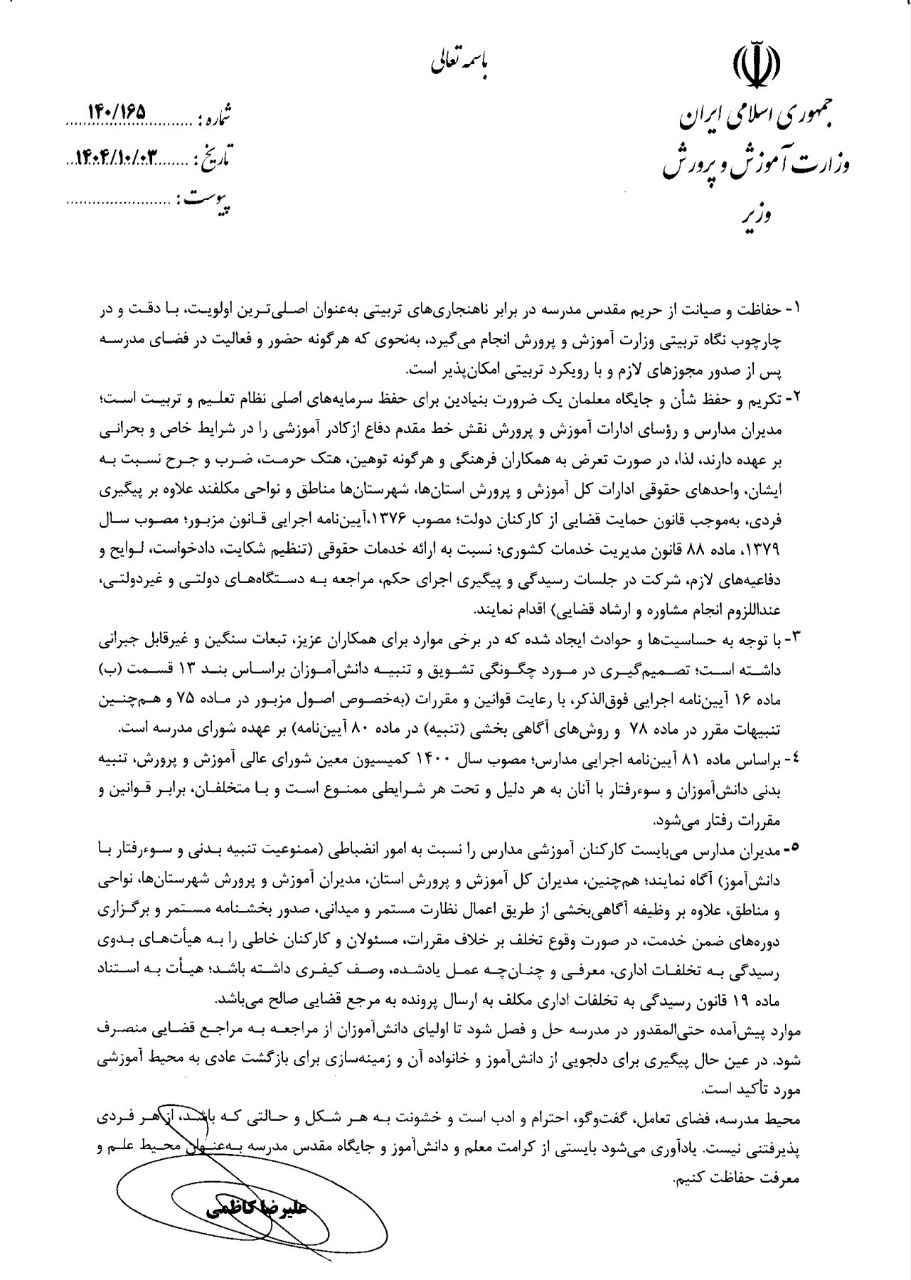 باسمه تعالی
جمهوری اسلامی ایران
وزارت آموزش و پرورش
وزیر
شماره : ۱۴۰/۱۶۵
تاریخ : ۱۴۰۴/۱۰/۰۳
پیوست :
۱- حفاظت و صیانت از حریم مقدس مدرسه در برابر ناهنجاری‌های تربیتی به‌عنوان اصلی‌ترین اولویت، با دقت و در
چارچوب نگاه تربیتی وزارت آموزش و پرورش انجام می‌گیرد، به‌نحوی که هرگونه حضور و فعالیت در فضای مدرسه
پس از صدور مجوزهای لازم و با رویکرد تربیتی امکان‌پذیر است.
۲- تکریم و حفظ شأن و جایگاه معلمان یک ضرورت بنیادین برای حفظ سرمایه‌های اصلی نظام تعلیم و تربیت است؛
مدیران مدارس و رؤسای ادارات آموزش و پرورش نقش خط مقدم دفاع ازکادر آموزشی را در شرایط خاص و بحرانی
بر عهده دارند، لذا، در صورت تعرض به همکاران فرهنگی و هرگونه توهین، هتک حرمت، ضرب و جرح نسبت به
ایشان، واحدهای حقوقی ادارات کل آموزش و پرورش استان‌ها، شهرستان‌ها مناطق و نواحی مکلفند علاوه بر پیگیری
فردی، به‌موجب قانون حمایت قضایی از کارکنان دولت؛ مصوب ۱۳۷۶،آیین‌نامه اجرایی قانون مزبور؛ مصوب سال
۱۳۷۹، ماده ۸۸ قانون مدیریت خدمات کشوری؛ نسبت به ارائه خدمات حقوقی (تنظیم شکایت، دادخواست، لوایح و
دفاعیه‌های لازم، شرکت در جلسات رسیدگی و پیگیری اجرای حکم، مراجعه به دستگاه‌های دولتی و غیردولتی،
عنداللزوم انجام مشاوره و ارشاد قضایی) اقدام نمایند.
۳- با توجه به حساسیت‌ها و حوادث ایجاد شده که در برخی موارد برای همکاران عزیز، تبعات سنگین و غیرقابل جبرانی
داشته است؛ تصمیم‌گیری در مورد چگونگی تشویق و تنبیه دانش‌آموزان براساس بند ۱۳ قسمت (ب)
ماده ۱۶ آیین‌نامه اجرایی فوق‌الذکر، با رعایت قوانین و مقررات (به‌خصوص اصول مزبور در ماده ۷۵ و هم‌چنین
تنبیهات مقرر در ماده ۷۸ و روش‌های آگاهی بخشی (تنبیه) در ماده ۸۰ آیین‌نامه) بر عهده شورای مدرسه است.
۴- براساس ماده ۸۱ آیین‌نامه اجرایی مدارس؛ مصوب سال ۱۴۰۰ کمیسیون معین شورای عالی آموزش و پرورش، تنبیه
بدنی دانش‌آموزان و سوءرفتار با آنان به هر دلیل و تحت هر شرایطی ممنوع است و با متخلفان، برابر قوانین و
مقررات رفتار می‌شود.
۵- مدیران مدارس می‌بایست کارکنان آموزشی مدارس را نسبت به امور انضباطی (ممنوعیت تنبیه بدنی و سوءرفتار با
دانش‌آموز) آگاه نمایند؛ هم‌چنین، مدیران کل آموزش و پرورش استان، مدیران آموزش و پرورش شهرستان‌ها، نواحی
و مناطق، علاوه بر وظیفه آگاهی‌بخشی از طریق اعمال نظارت مستمر و میدانی، صدور بخشنامه مستمر و برگزاری
دوره‌های ضمن خدمت، در صورت وقوع تخلف بر خلاف مقررات، مسئولان و کارکنان خاطی را به هیأت‌های بدوی
رسیدگی به تخلفات اداری، معرفی و چنان‌چه عمل یادشده، وصف کیفری داشته باشد؛ هیأت به استناد
ماده ۱۹ قانون رسیدگی به تخلفات اداری مکلف به ارسال پرونده به مرجع قضایی صالح می‌باشد.
موارد پیش‌آمده حتی‌المقدور در مدرسه حل و فصل شود تا اولیای دانش‌آموزان از مراجعه به مراجع قضایی منصرف
شود. در عین حال پیگیری برای دلجویی از دانش‌آموز و خانواده آن و زمینه‌سازی برای بازگشت عادی به محیط آموزشی
مورد تأکید است.
محیط مدرسه، فضای تعامل، گفت‌وگو، احترام و ادب است و خشونت به هر شکل و حالتی که باشد، از هر فردی
پذیرفتنی نیست. یادآوری می‌شود بایستی از کرامت معلم و دانش‌آموز و جایگاه مقدس مدرسه به‌عنوان محیط علم و
معرفت حفاظت کنیم.
علیرضا کاظمی